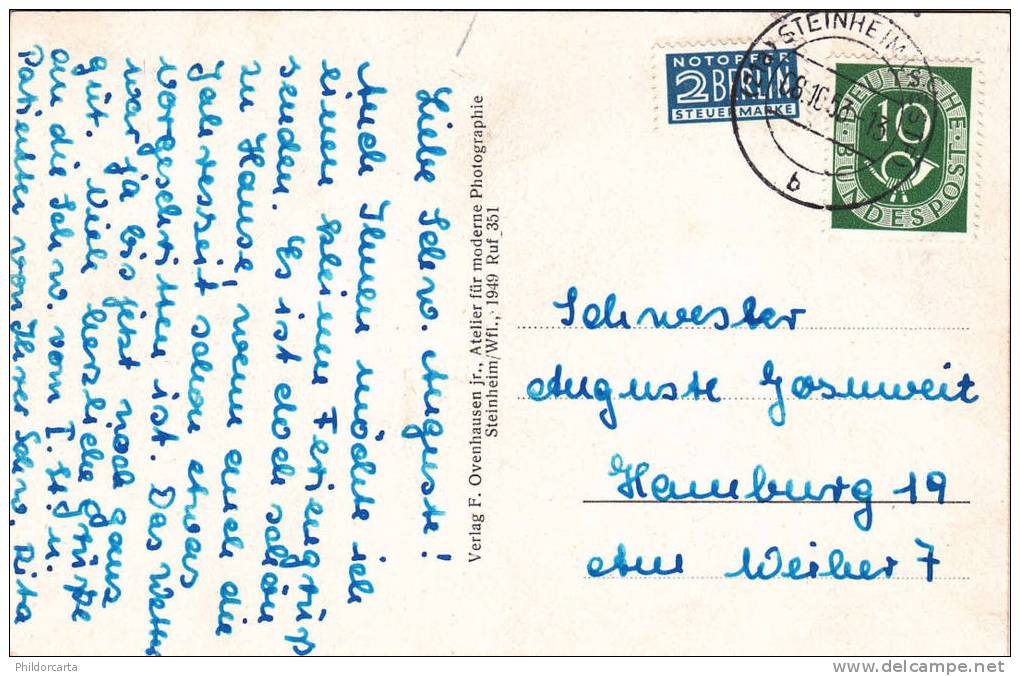 Liebe Schw. Auguste!
Auch Ihnen möchte ich
einen kleinen Feriengruß
senden. Es ist doch schön
zu Hause, wenn auch die
Jahreszeit schon etwas
vorgeschritten ist. Das Wetter
war ja bis jetzt noch ganz
gut. Viele herzliche Grüße
an die Schw. vom I. St. u.
Patienten von Ihrer Schw. Rita
Verlag F. Ovenhausen jr., Atelier für moderne Photographie
Steinheim/Wfl., 1949 Ruf 351
NOTOPFER
2 BERLIN
STEUERMARKE
STEINHEIM
08.10.53-13
b
DEUTSCHE
BUNDESPOST
10
Schwester
Auguste Gosuweit
Hamburg 19
Am Weiher 7
Phildorcarta
www.delcampe.net